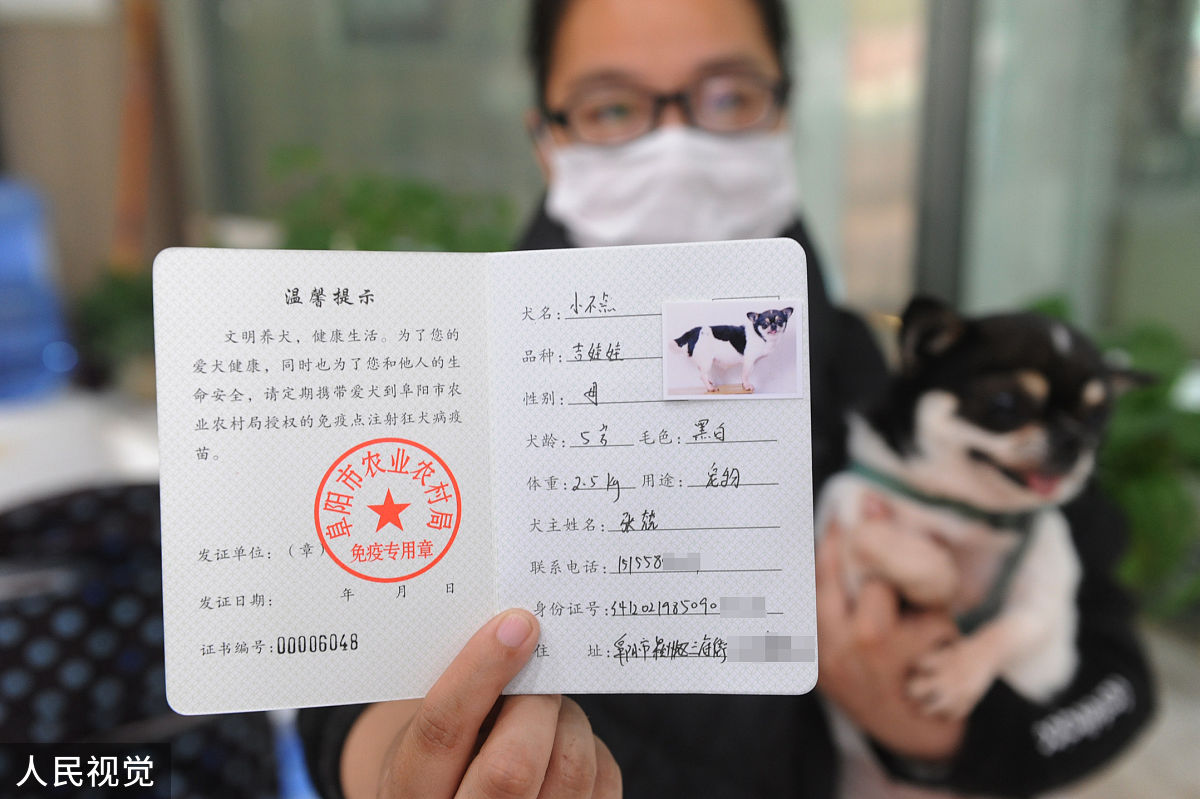 温馨提示
文明养犬，健康生活。为了您的
爱犬健康，同时也为了您和他人的生
命安全，请定期携带爱犬到阜阳市农
业农村局授权的免疫点注射狂犬病疫
苗。
阜阳市农业农村局
免疫专用章
发证单位：（章）
发证日期： 年 月 日
证书编号:00006048
犬名：小不点
品种：吉娃娃
性别：母
犬龄：5岁 毛色：黑白
体重：2.5kg 用途：宠物
犬主姓名：张
联系电话：151558
身份证号：3412021985090
住 址：阜阳市
人民视觉